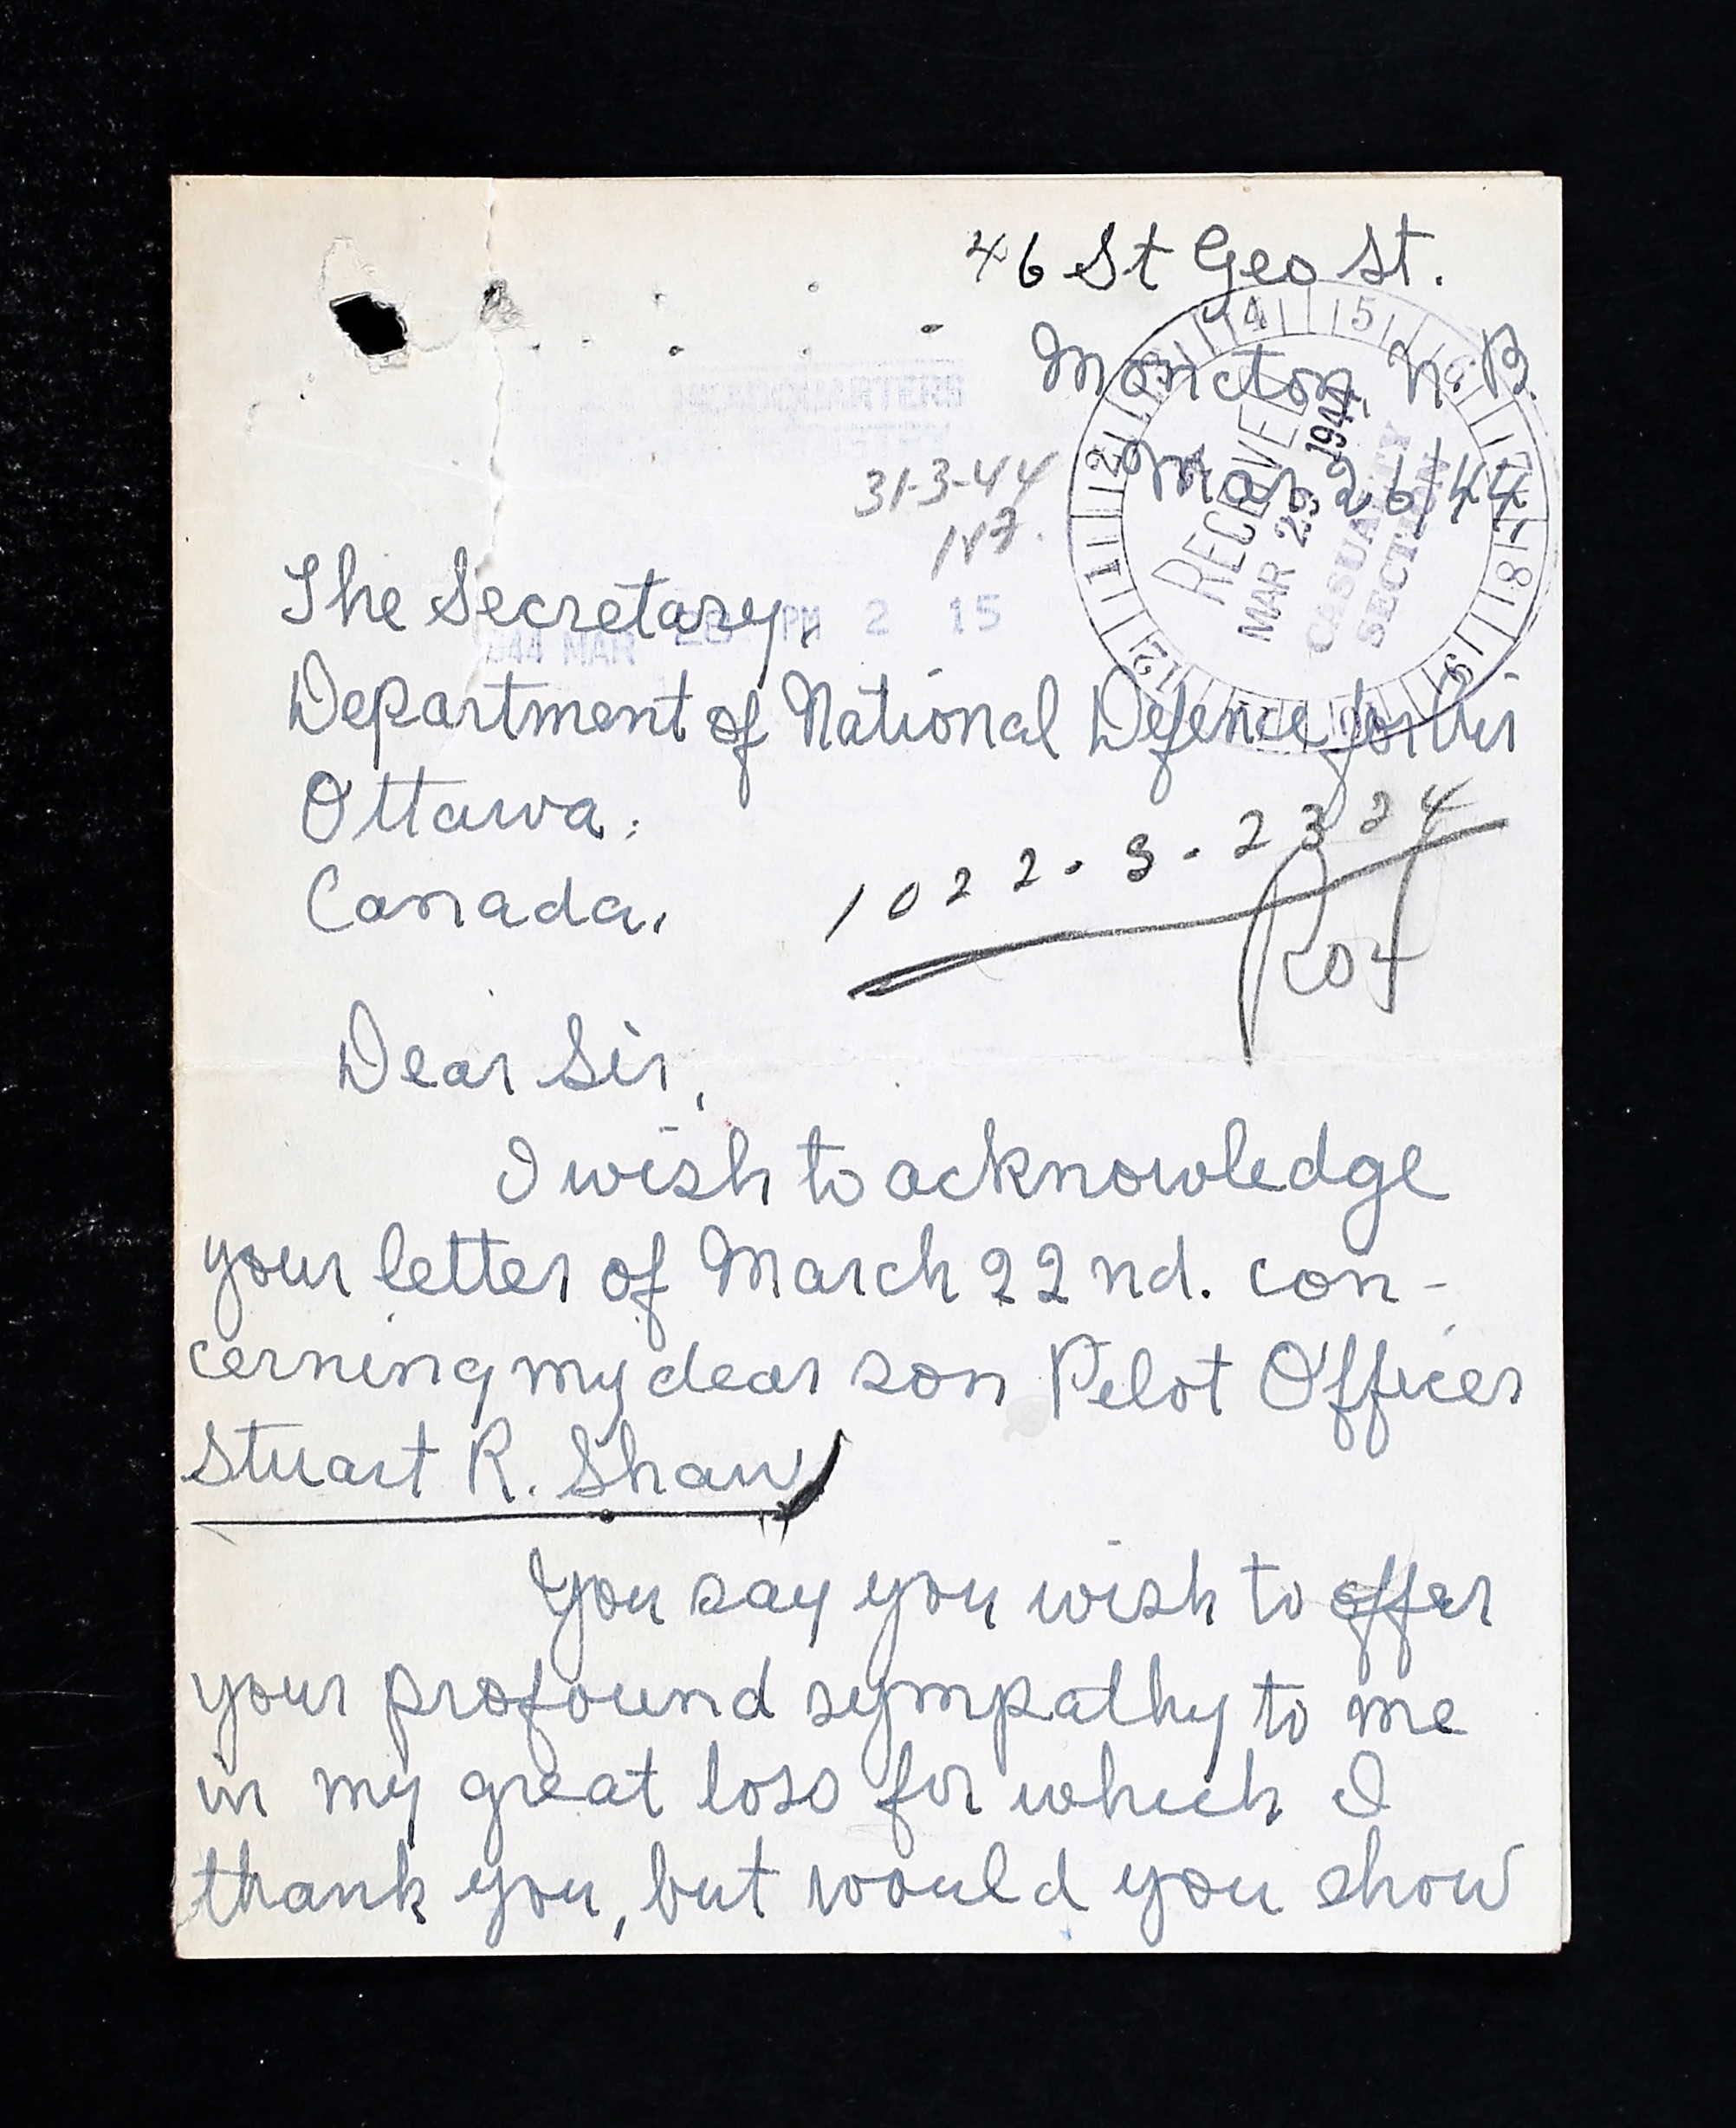 46 St Geo St.
Moncton, N. B.
Mar 26/44
RECEIVED
MAR 29 1944
CASUALTY
SECTION
31-3-44
The Secretary,
1944 MAR 28 PM 2 15
Department of National Defence for Air
Ottawa.
Canada.
1022-S-2324
Dear Sir,
I wish to acknowledge
your letter of March 22nd. con-
cerning my dear son Pilot Officer
Stuart R. Shaw
You say you wish to offer
your profound sympathy to me
in my great loss for which I
thank you, but would you show